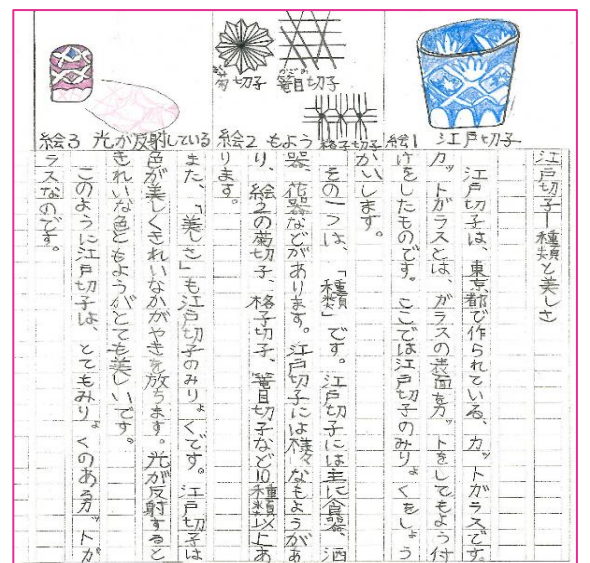 絵1 江戸切子
菊切子
きく
篭目切子
かごめ
格子切子
絵2 もよう
絵3 光が反射している
江戸切子ー種類と美しさ
江戸切子は、東京都で作られている、カットガラスです。
カットガラスとは、ガラスの表面をカットをしてもよう付
けをしたものです。ここでは江戸切子のみりょくをしょう
かいします。
その一つは、「種類」です。江戸切子には主に食器、酒
器、花器などがあります。江戸切子には様々なもようがあ
り、絵2の菊切子、格子切子、篭目切子など10種類以上あ
ります。
また、「美しさ」も江戸切子のみりょくです。江戸切子は
色が美しくきれいなかがやきを放ちます。光が反射すると
きれいな色ともようがとても美しいです。
このように江戸切子は、とてもみりょくのあるカットガ
ラスなのです。